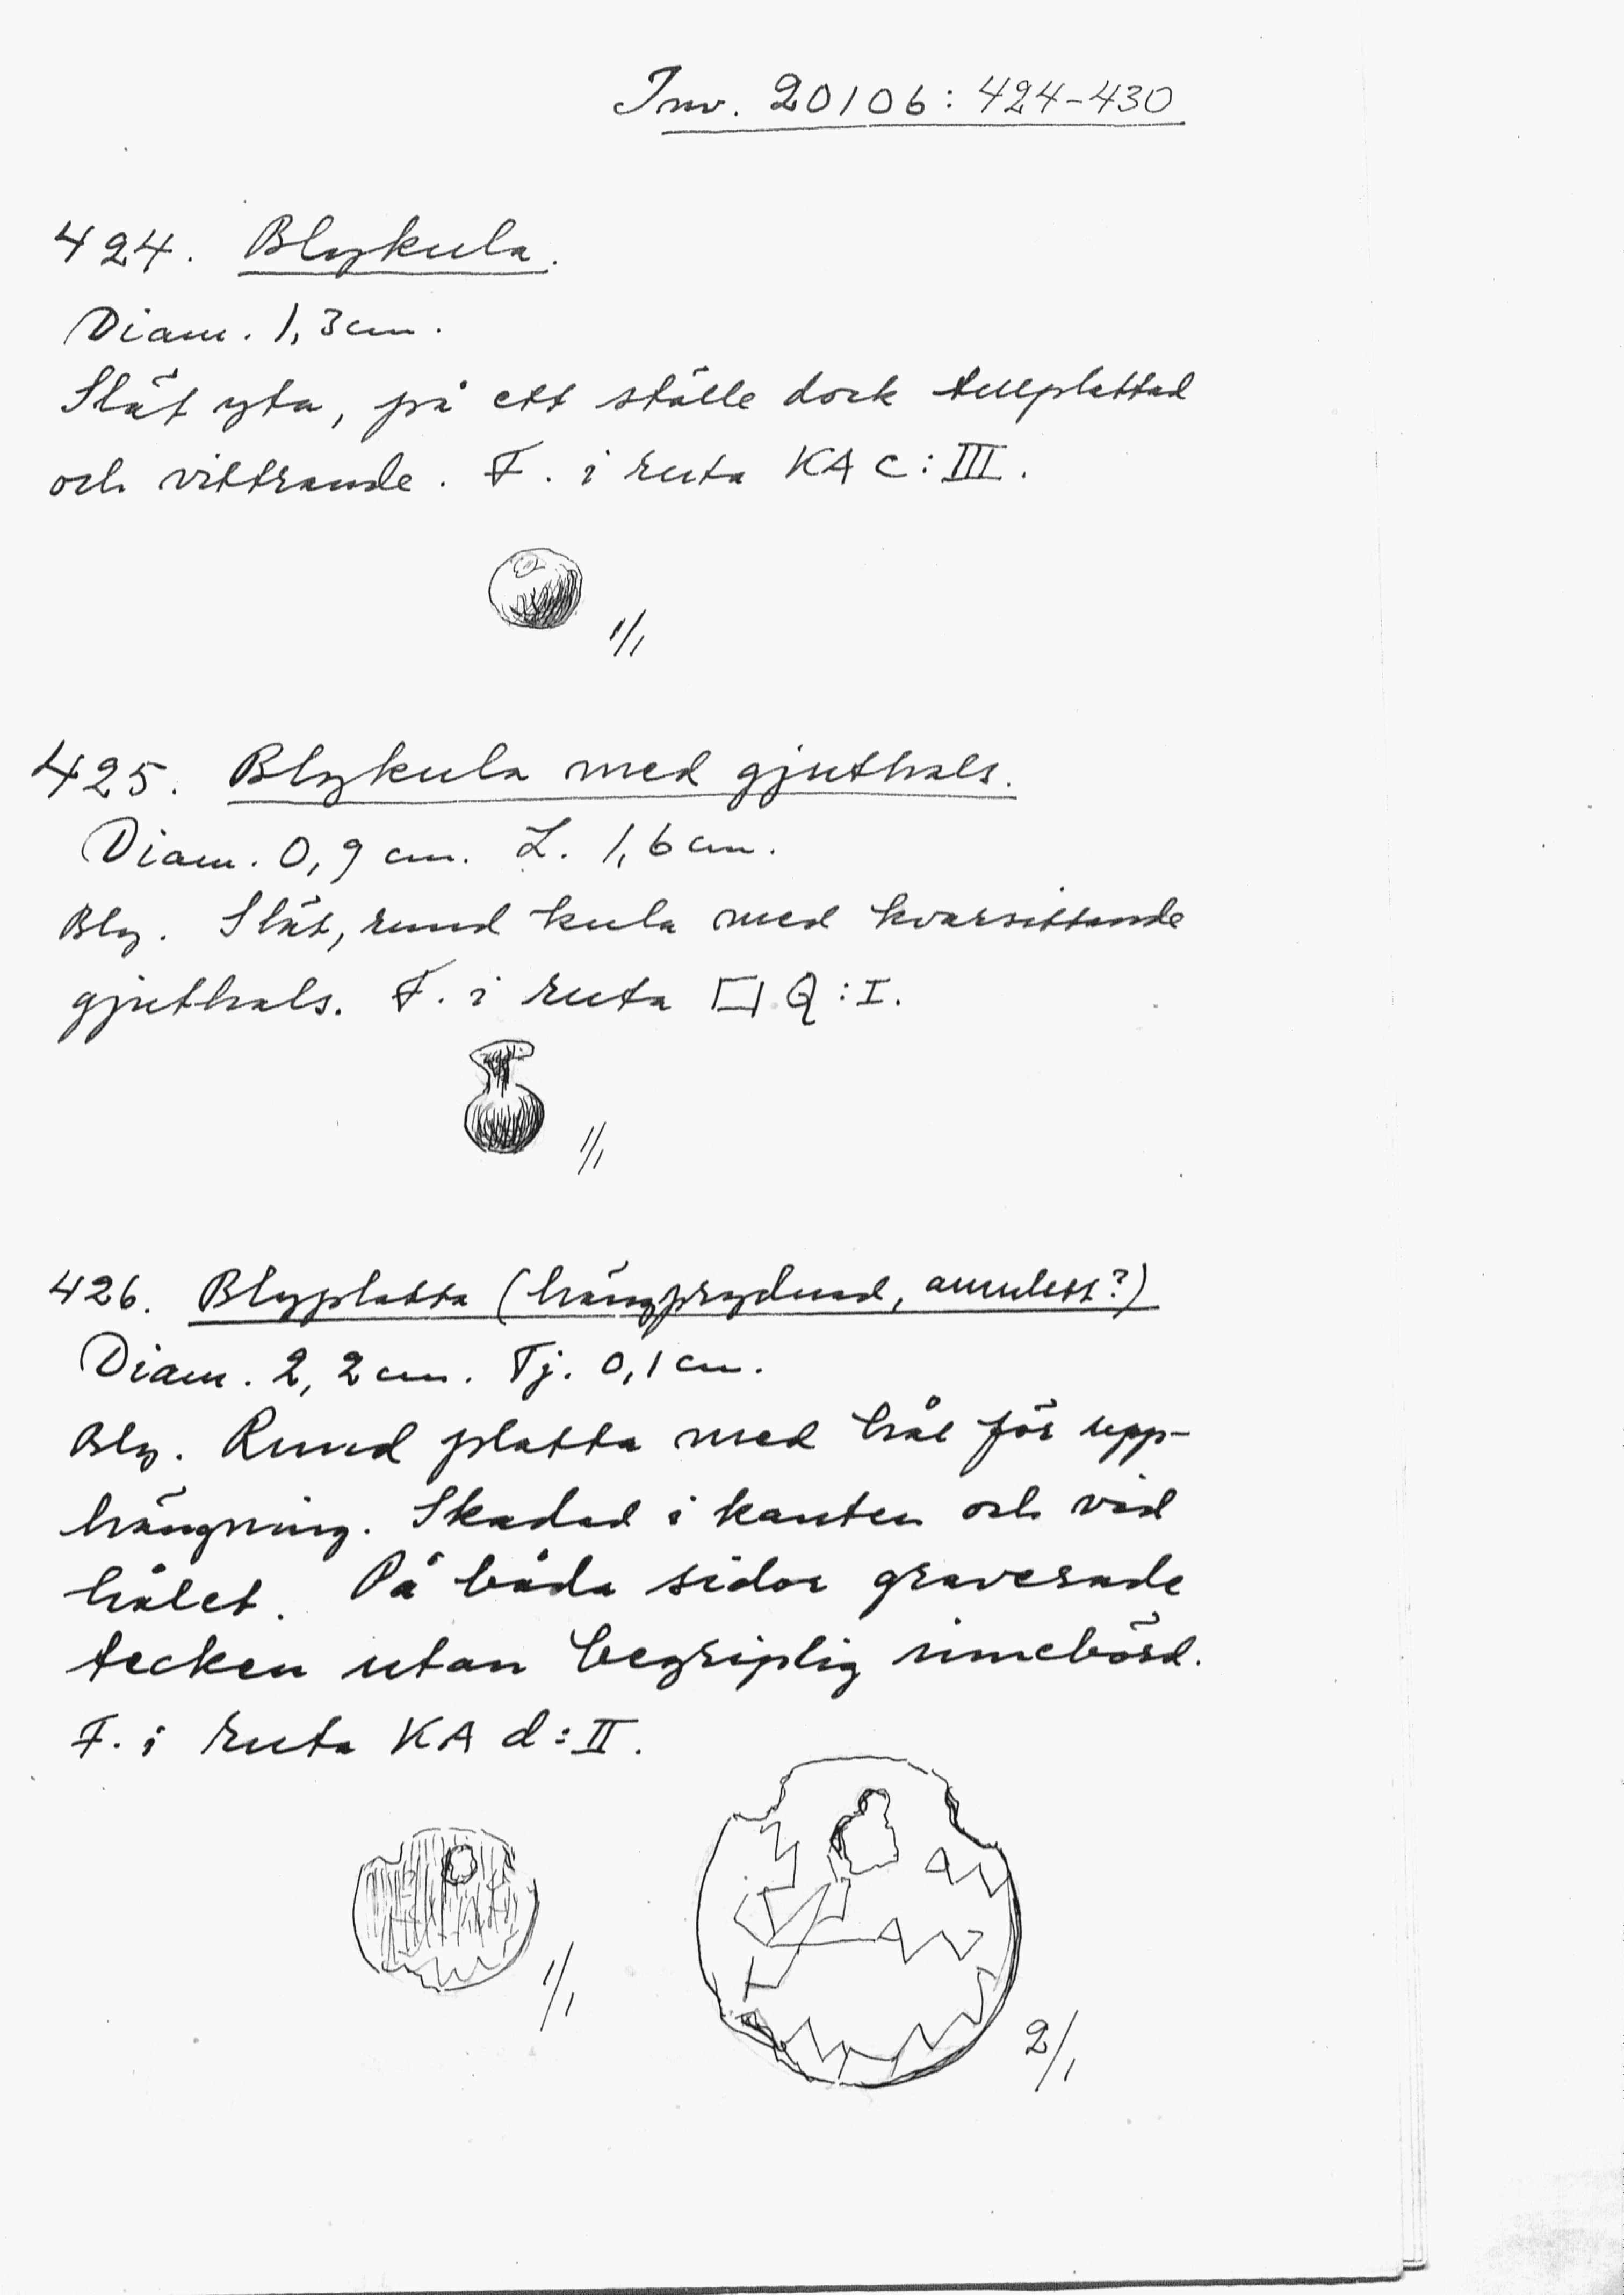 Inv. 20106: 424-430
424. Blykula.
Diam. 1,3 cm.
Slät yta, på ett ställe dock tillplattad
och vittrande. F. i ruta KA c:III.
1/1
425. Blykula med gjuthals.
Diam. 0,9 cm. L. 1,6 cm.
Bly. Slät, rund kula med kvarsittande
gjuthals. F. i ruta Q:I.
1/1
426. Blyplatta (hängprydnad, amulett?)
Diam. 2,2 cm. Tj. 0,1 cm.
Bly. Rund platta med hål för upp-
hängning. Skadad i kanten och vid
hålet. På båda sidor graverade
tecken utan begriplig innebörd.
F. i ruta KA d:II.
1/1
2/1